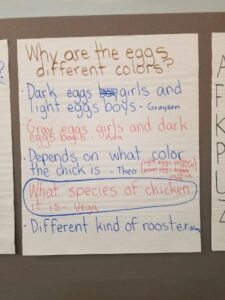 Why are the eggs
different colors?
• Dark eggs girls and
light eggs boys - Grayson
• Gray eggs girls and dark
eggs boys - Ada
• Depends on what color
the chick is - Theo
What species of chicken
it is - Vega
• Different kind of rooster